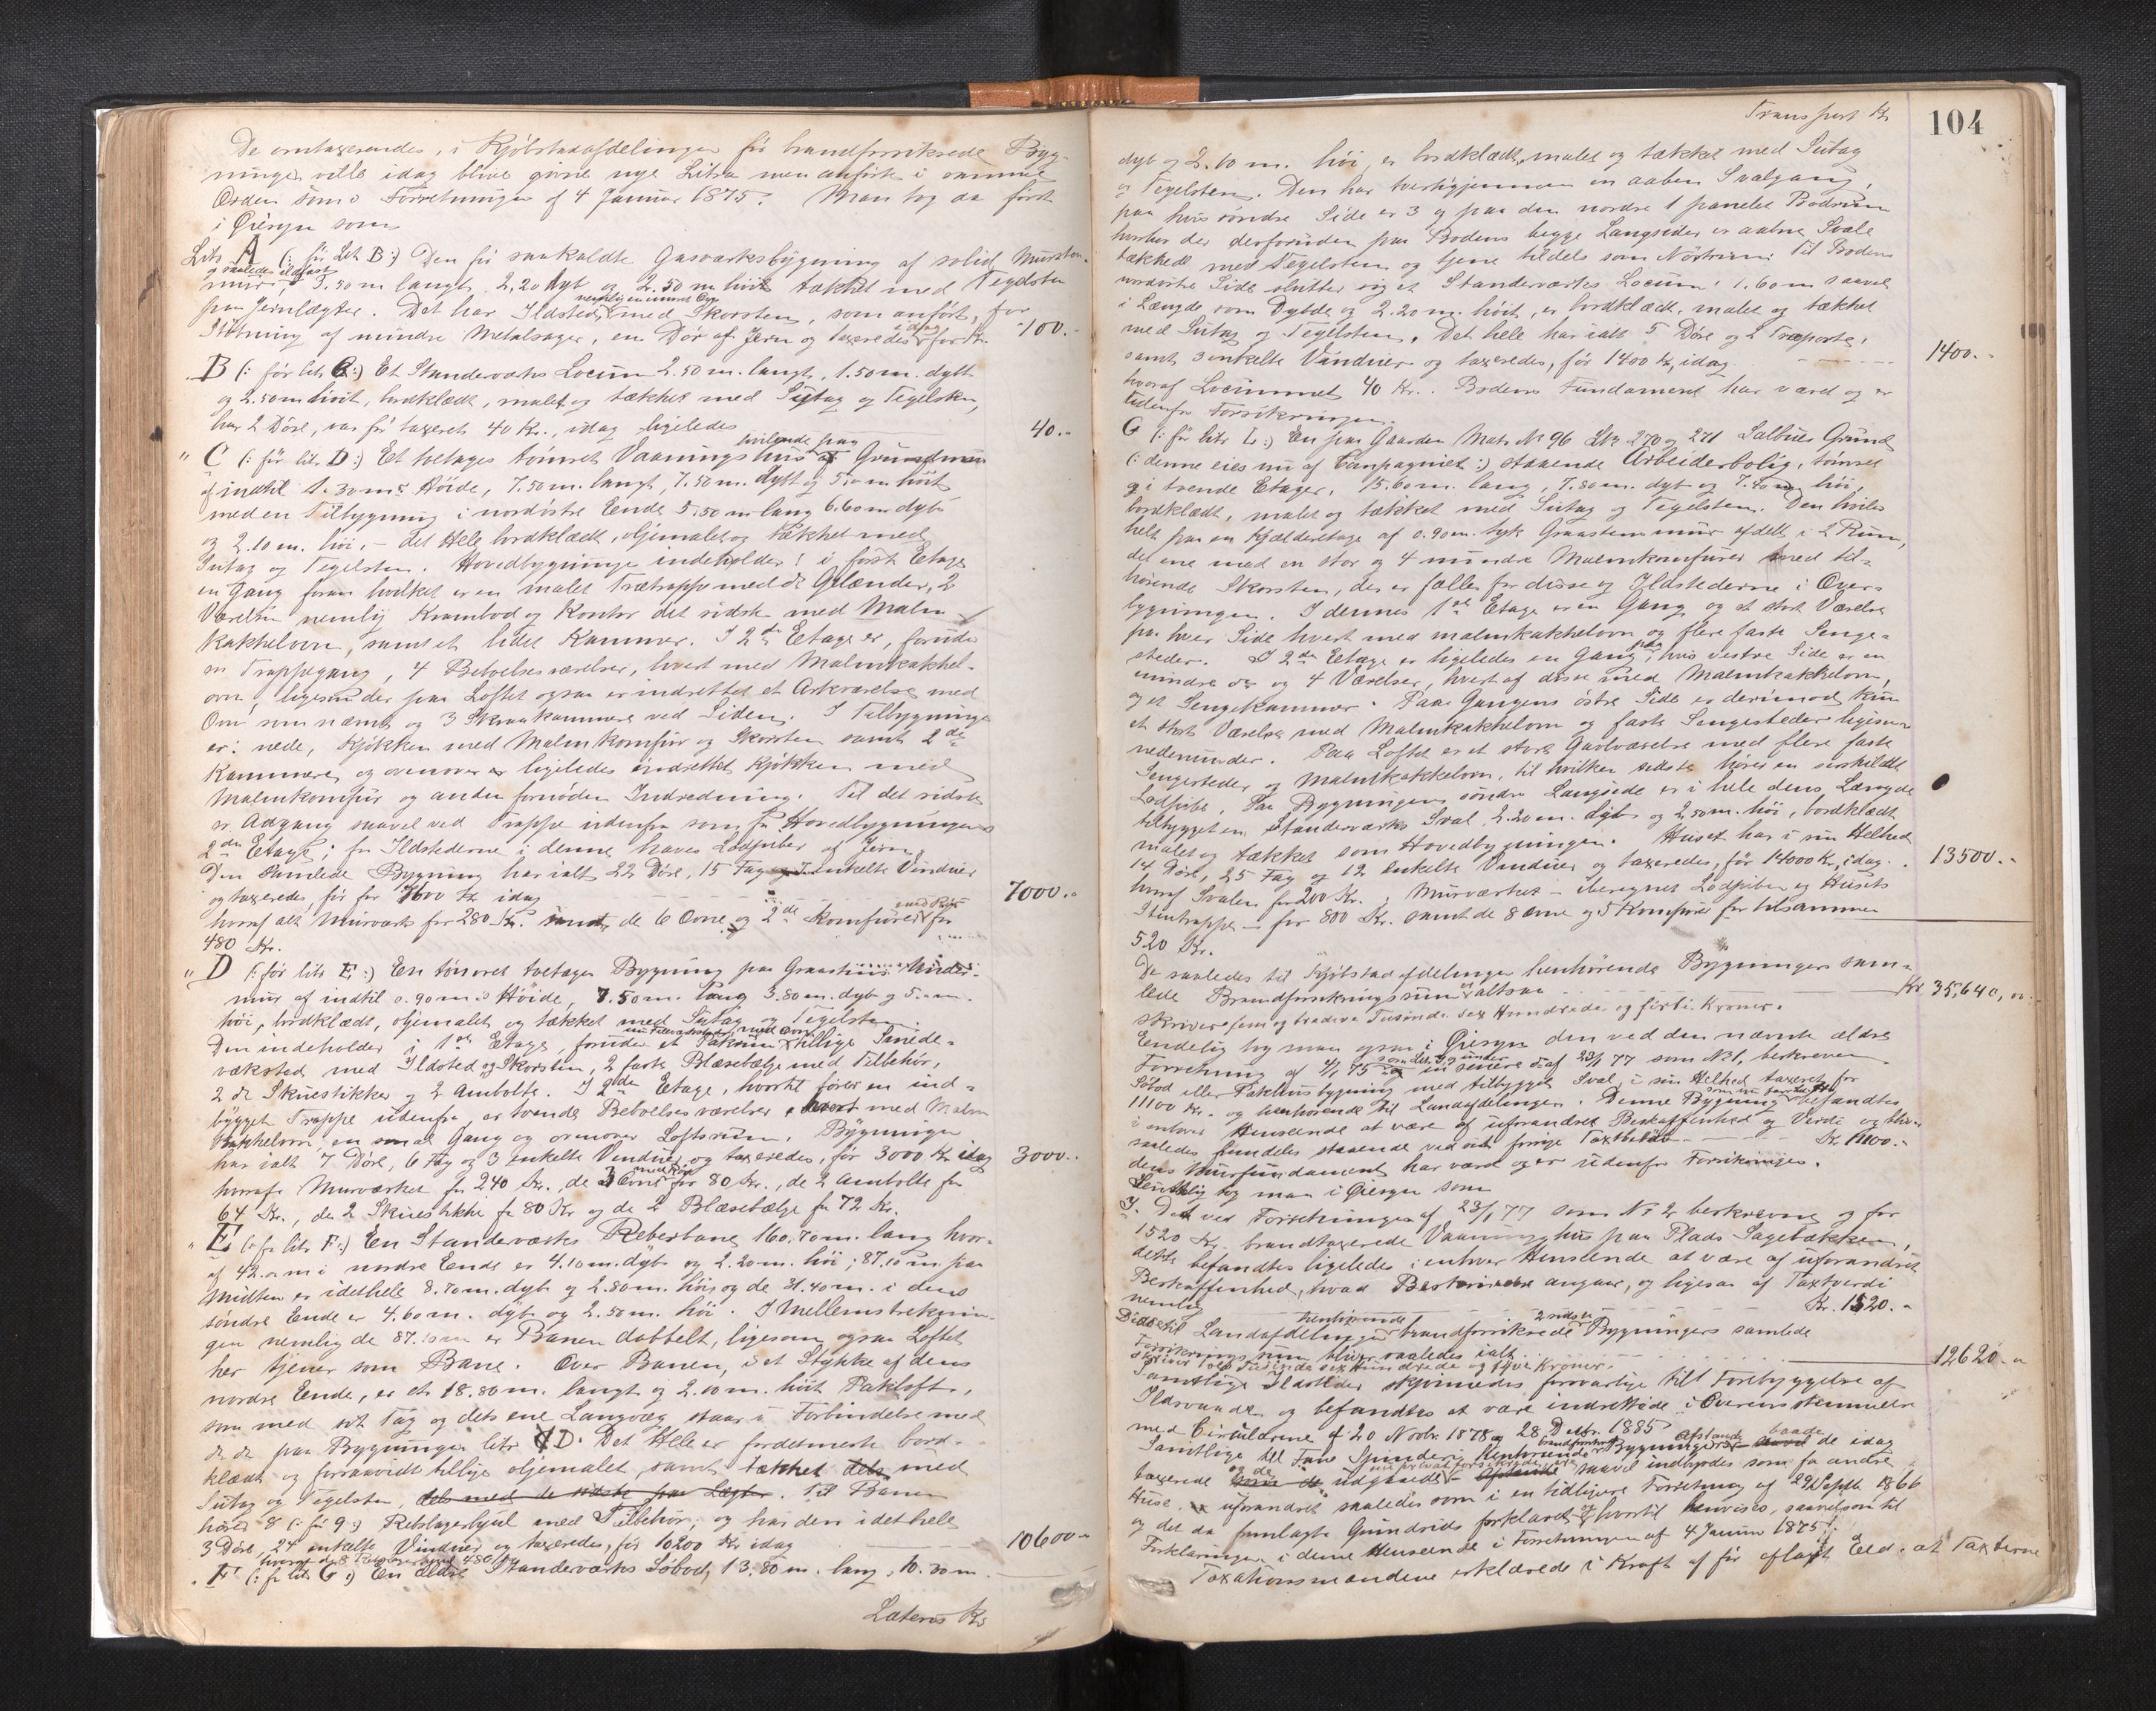 De omtaxerendes, i Kjøbstadafdelingen før brandforsikrede Byg-
ninger ville idag blive givne nye Litra men anføres i samme
Orden som i Forretningen af 4 Januar 1875. Man tog da først
i Øiesyn som
Litr. A (: før Litr. B :) Den før saakaldte Gasværksbygning af solid Mursten-
og saaledes ildfast
mur 3.50 m langt, 2,20 dyb og 2.50 m høit tækket med Tegelsten
nemlig en muret Ovn
paa Jernlægter. Det har Ildsted, med Skorsten, som anført, for
Støbning af mindre Metalsager, en Dør af Jern og taxeredes idag for Kr. 100.-
B (: før litr. C :) Et Standerværks Locum 2.50 m. langt, 1.50 m. dybt
og 2.50 m høit, bordklædt, malet og tækket med Sutag og Tegelsten,
har 2 Døre, var før taxeret 40 Kr., idag ligeledes 40.-
hvilende paa
" C (: før litr. D :) Et toetages tømret Vaaningshus Grundmur
af indtil 1.30 m's Høide, 7.50 m. langt, 7.50 m. dybt og 5.00 m høit
med en Tilbygning i nordøstre Ende 5.50 m lang 6.60 m dyb
og 2.10 m. høi, - det Hele bordklædt, oljemalet og tækket med
Sutag og Tegelsten. Hovedbygningen indeholder: i første Etage
en Gang foran hvilket er en malet Trætrappe med do Gelænder, 2
Værelser nemlig Krambod og Kontor det sidste med Malm-
kakkelovn, samt et lidet Kammer. I 2den Etage er, foruden
en Trappegang, 4 Beboelsesværelser, hvert med Malmkakkel-
ovn, ligesom der paa Loftet ogsaa er indrettet et Arkværelse med
Ovn som nævnt og 3 Skraakammere ved Siden. I Tilbygningen
er: nede, Kjøkken med Malmkomfur og Skorsten samt 2de
Kammere, og ovenover ligeledes indrettet Kjøkken med
Malmkomfur og anden fornøden Indredning. Til det sidste
er Adgang saavel ved Trappe udenfra som fra Hovedbygningens
2den Etage; for Ildstederne i denne haves Lodpiber af Jern.
Den samlede Bygning har ialt 22 Døre, 15 Fag enkelte Vinduer
og taxeredes, før for 7600 Kr idag 7000.-
med Rør
hvoraf alt Murværk for 280 Kr. samt de 6 Ovne og 2de Komfurer for
480 Kr.
" D (: før litr. E :) En tømret toetages Bygning paa Graastens Under-
mur af indtil 0.90 m.s Høide, 7.50 m. lang 3.80 m. dyb og 5. m.
høi, bordklædt, oljemalet og tækket med Sutag og Tegelsten
Den indeholder i 1ste Etage, foruden et Pakrum tillige Smede-
værksted med Ildsted og Skorsten, 2 faste Blæsebælge med Tilbehør,
2 do Skruestikker og 2 Ambolte. I 2den Etage, hvortil fører en ind-
bygget Trappe udenfra, er tvende Beboelsesværelser, hvert med Malm
Kakkelovn, en smal Gang og ovenover Loftsrum. Bygningen
har ialt 7 Døre, 6 Fag og 3 enkelte Vinduer og taxeredes, før 3000 Kr idag 3000.-
med Rør
hvoraf Murværket for 240 Kr., de 3 Ovne for 80 Kr., de 2 Ambolte for
64 Kr., de 2 Skruestikke for 80 Kr og de 2 Blæsebælge for 72 Kr.
" E (: før litr. F :) En Standerværks Reberbane 160.70 m. lang hvor-
af 42. m i nordre Ende er 4.10 m. dyb og 2.20 m. høi; 87.10 m. paa
Midten er idethele 8.70 m. dyb og 2.80 m. høi og de 31.40 m. i dens
søndre Ende er 4.60 m. dyb og 2.50 m. høi. I Mellemstræknin-
gen nemlig de 87.10 m er Banen dobbelt, ligesom ogsaa Loftet
her tjener som Bane. Over Banen, i et Stykke af dens
nordre Ende, er et 18.80 m. langt og 2.00 m. høit Pakloft,
som med sit Tag og dets ene Langvæg staar i Forbindelse med
de paa Bygningen litr D. Det Hele er fordetmeste bord-
klædt og forsaavidt tillige oljemalet, samt tækket dels med
Sutag og Tegelsten, dels med de sidste paa Lægter. Til Banen
hører 8 (: før 9 :) Rebslagerhjul med Tilbehør, og har den i det hele
3 Døre, 24 enkelte Vinduer og taxeredes, før 10200 Kr idag 10600.-
hvoraf de 8 480
" F (: før litr. G :) En ældre Standerværks Søbod, 13.80 m. lang, 10.30 m.
Lateris Kr
Transport Kr
104
dyb og 2.10 m. høi, er bordklædt, malet og tækket med Sutag
og Tegelsten. Den har tversigjennem en aaben Svalgang,
paa hvis søndre Side er 3 og paa den nordre 1 panelet Bodrum
hvorhos der desforuden paa Bodens begge Langsider er aabne Svale
tækkede med Tegelsten og tjene tildels som Nøstrum. Til Bodens
nordostre Side slutter sig et Standerværks Locum: 1.60 m saavel
i Længde som Dybde og 2.20 m. høit, er bordklædt, malet og tækket
med Sutag og Tegelsten. Det hele har ialt 5 Døre og 2 Træporte,
samt 3 enkelte Vinduer og taxeredes, før 1400 Kr, idag 1400.-
hvoraf Locummet 40 Kr. Bodens Fundament har været og er
udenfor Forsikringen.
G (: før litr L :) En paa Gaarden Matr. No 96 LNr 270 og 271 Salbues Grund
(: denne eies nu af Compagniet :) staaende Arbeiderbolig, tømret
og i tvende Etager, 15.60 m. lang, 7.80 m. dyb og 7.40 m høi,
bordklædt, malet og tækket med Sutag og Tegelsten. Den hviler
helt paa en Kjælderetage af 0.90 m. tyk Graastensmur afdelt i 2 Rum,
det ene med en stor og 4 mindre Malmkomfurer med til-
hørende Skorsten, der er fælles for disse og Ildstederne i Over-
bygningen. I dennes 1ste Etage er en Gang og et stort Værelse
paa hver Side hvert med malmkakkelovn og flere faste Senge-
steder. I 2den Etage er ligeledes en Gang, paa hvis vestre Side er en
mindre do og 4 Værelser, hvert af disse med Malmkakkelovn,
og et Sengekammer. Paa Gangens østre Side er derimod kun
et stort Værelse med Malmkakkelovn og faste Sengesteder ligesom
nedenunder. Paa Loftet er et stort Gavlværelse med flere faste
Sengesteder og Malmkakkelovn, til hvilken sidste hører en særskildt
Lodpibe. Paa Bygningens søndre Langside er i hele dens Længde
tilbygget en Standerværks Sval 2.20 m. dyb og 2.50 m. høi, bordklædt
malet og tækket som Hovedbygningen. Huset har i sin Helhed
14 Døre, 25 Fag og 12 enkelte Vinduer og taxeredes, før 14000 Kr, idag 13500.-
hvoraf Svalen for 200 Kr., Murværket - iberegnet Lodpiben og Husets
Stentrappe - for 800 Kr. samt de 8 Ovne og 5 Komfurer for tilsammen
520 Kr.
De saaledes til Kjøbstadafdelingen henhørende Bygningers sam-
lede Brandforsikringssum er altsaa Kr 35,640,00
skriver fem og tredive Tusinde sex Hundrede og førti Kroner.
Endelig tog man ogsaa i Øiesyn den ved den nævnte ældre
Forretning af 4/1 75 og en senere do af 23/1 77 som No 1, beskreven
Søbod eller Pakhusbygning med tilbygget Sval, i sin Helhed taxeret for
11100 Kr. og henhørende til Landafdelingen. Denne Bygning befandtes
i enhver Henseende at være af uforandret Beskaffenhed og Værdi og blev
saaledes fremdeles staaende ved sit forrige Taxtbeløb Kr. 11100.-
dens Murfundament har været og er udenfor Forsikringen.
Sluttelig tog man i Øiesyn som
I. Det ved Forretningen af 23/1 77 som No 2 beskrevne og for
1520 Kr. brandtaxerede Vaaningshus paa Plads Sagebækken,
dette befandtes ligeledes i enhver Henseende at være af uforandret
Beskaffenhed, hvad Beskrivelse angaar, og ligesaa af Taxtværdi
nemlig Kr. 1520.-
henhørende 2 sidste
Disse til Landafdelingen brandforsikrede Bygningers samlede
Forsikringssum bliver saaledes ialt 12620.-
skriver tolv Tusinde sex Hundrede og tyve Kroner.
Samtlige Ildsteder skjønnedes forsvarlige til Forebyggelse af
Ildsvaade og befandtes at være indrettede i Overensstemmelse
med Circulærene af 20 Novbr. 1878 og 28 Decbr. 1885
Samtlige til Fane Spinderi henhørende Bygningers Afstande baade de idag
taxerede og de udgaaede saavel indbyrdes som fra andre
Huse, er uforandret saaledes som i en tidligere Forretning af 29 Septbr 1866
og det da fremlagte Grundrids forklaret og hvortil henvises, saavelsom til
Forklaringen i denne Henseende i Forretningen af 4 Januar 1875.
Taxationsmændene erklærede i Kraft af før aflagt Eed, at Taxterne